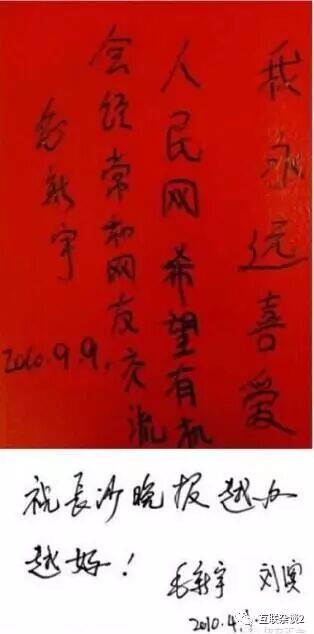 我永远喜爱
人民网希望有机
会经常和网友交流
毛新宇
2010.9.9.
祝长沙晚报越办
越好!
毛新宇 刘滨
2010.4.
互联杂谈2